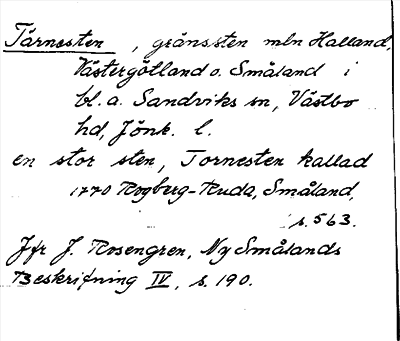 Tärnesten , gränssten mln Halland,
Västergötland o. Småland i
bl. a. Sandviks sn, Västbo
hd, Jönk. l.
en stor sten, Tornesten kallad
1770 Rogberg-Ruda, Småland,
s. 563.
Jfr J. Rosengren, Ny Smålands
Beskrifning IV, s. 190.